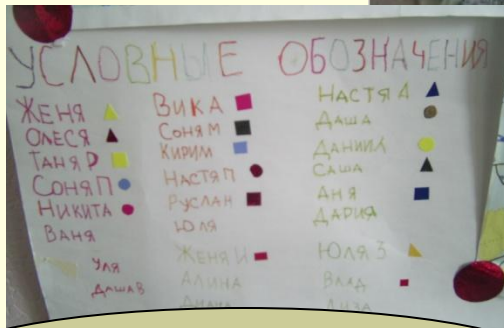 УСЛОВНЫЕ ОБОЗНАЧЕНИЯ
ЖЕНЯ
ОЛЕСЯ
ТАНЯ Р
СОНЯ П
НИКИТА
ВАНЯ
УЛЯ
ДАША В
ВИКА
СОНЯ М
КИРИМ
НАСТЯ П
РУСЛАН
ЮЛЯ
ЖЕНЯ И
АЛИНА
ДИАНА
НАСТЯ А
ДАША
ДАНИИЛ
САША
АНЯ
ДАРИЯ
ЮЛЯ З
ВЛАД
ЛИЗА